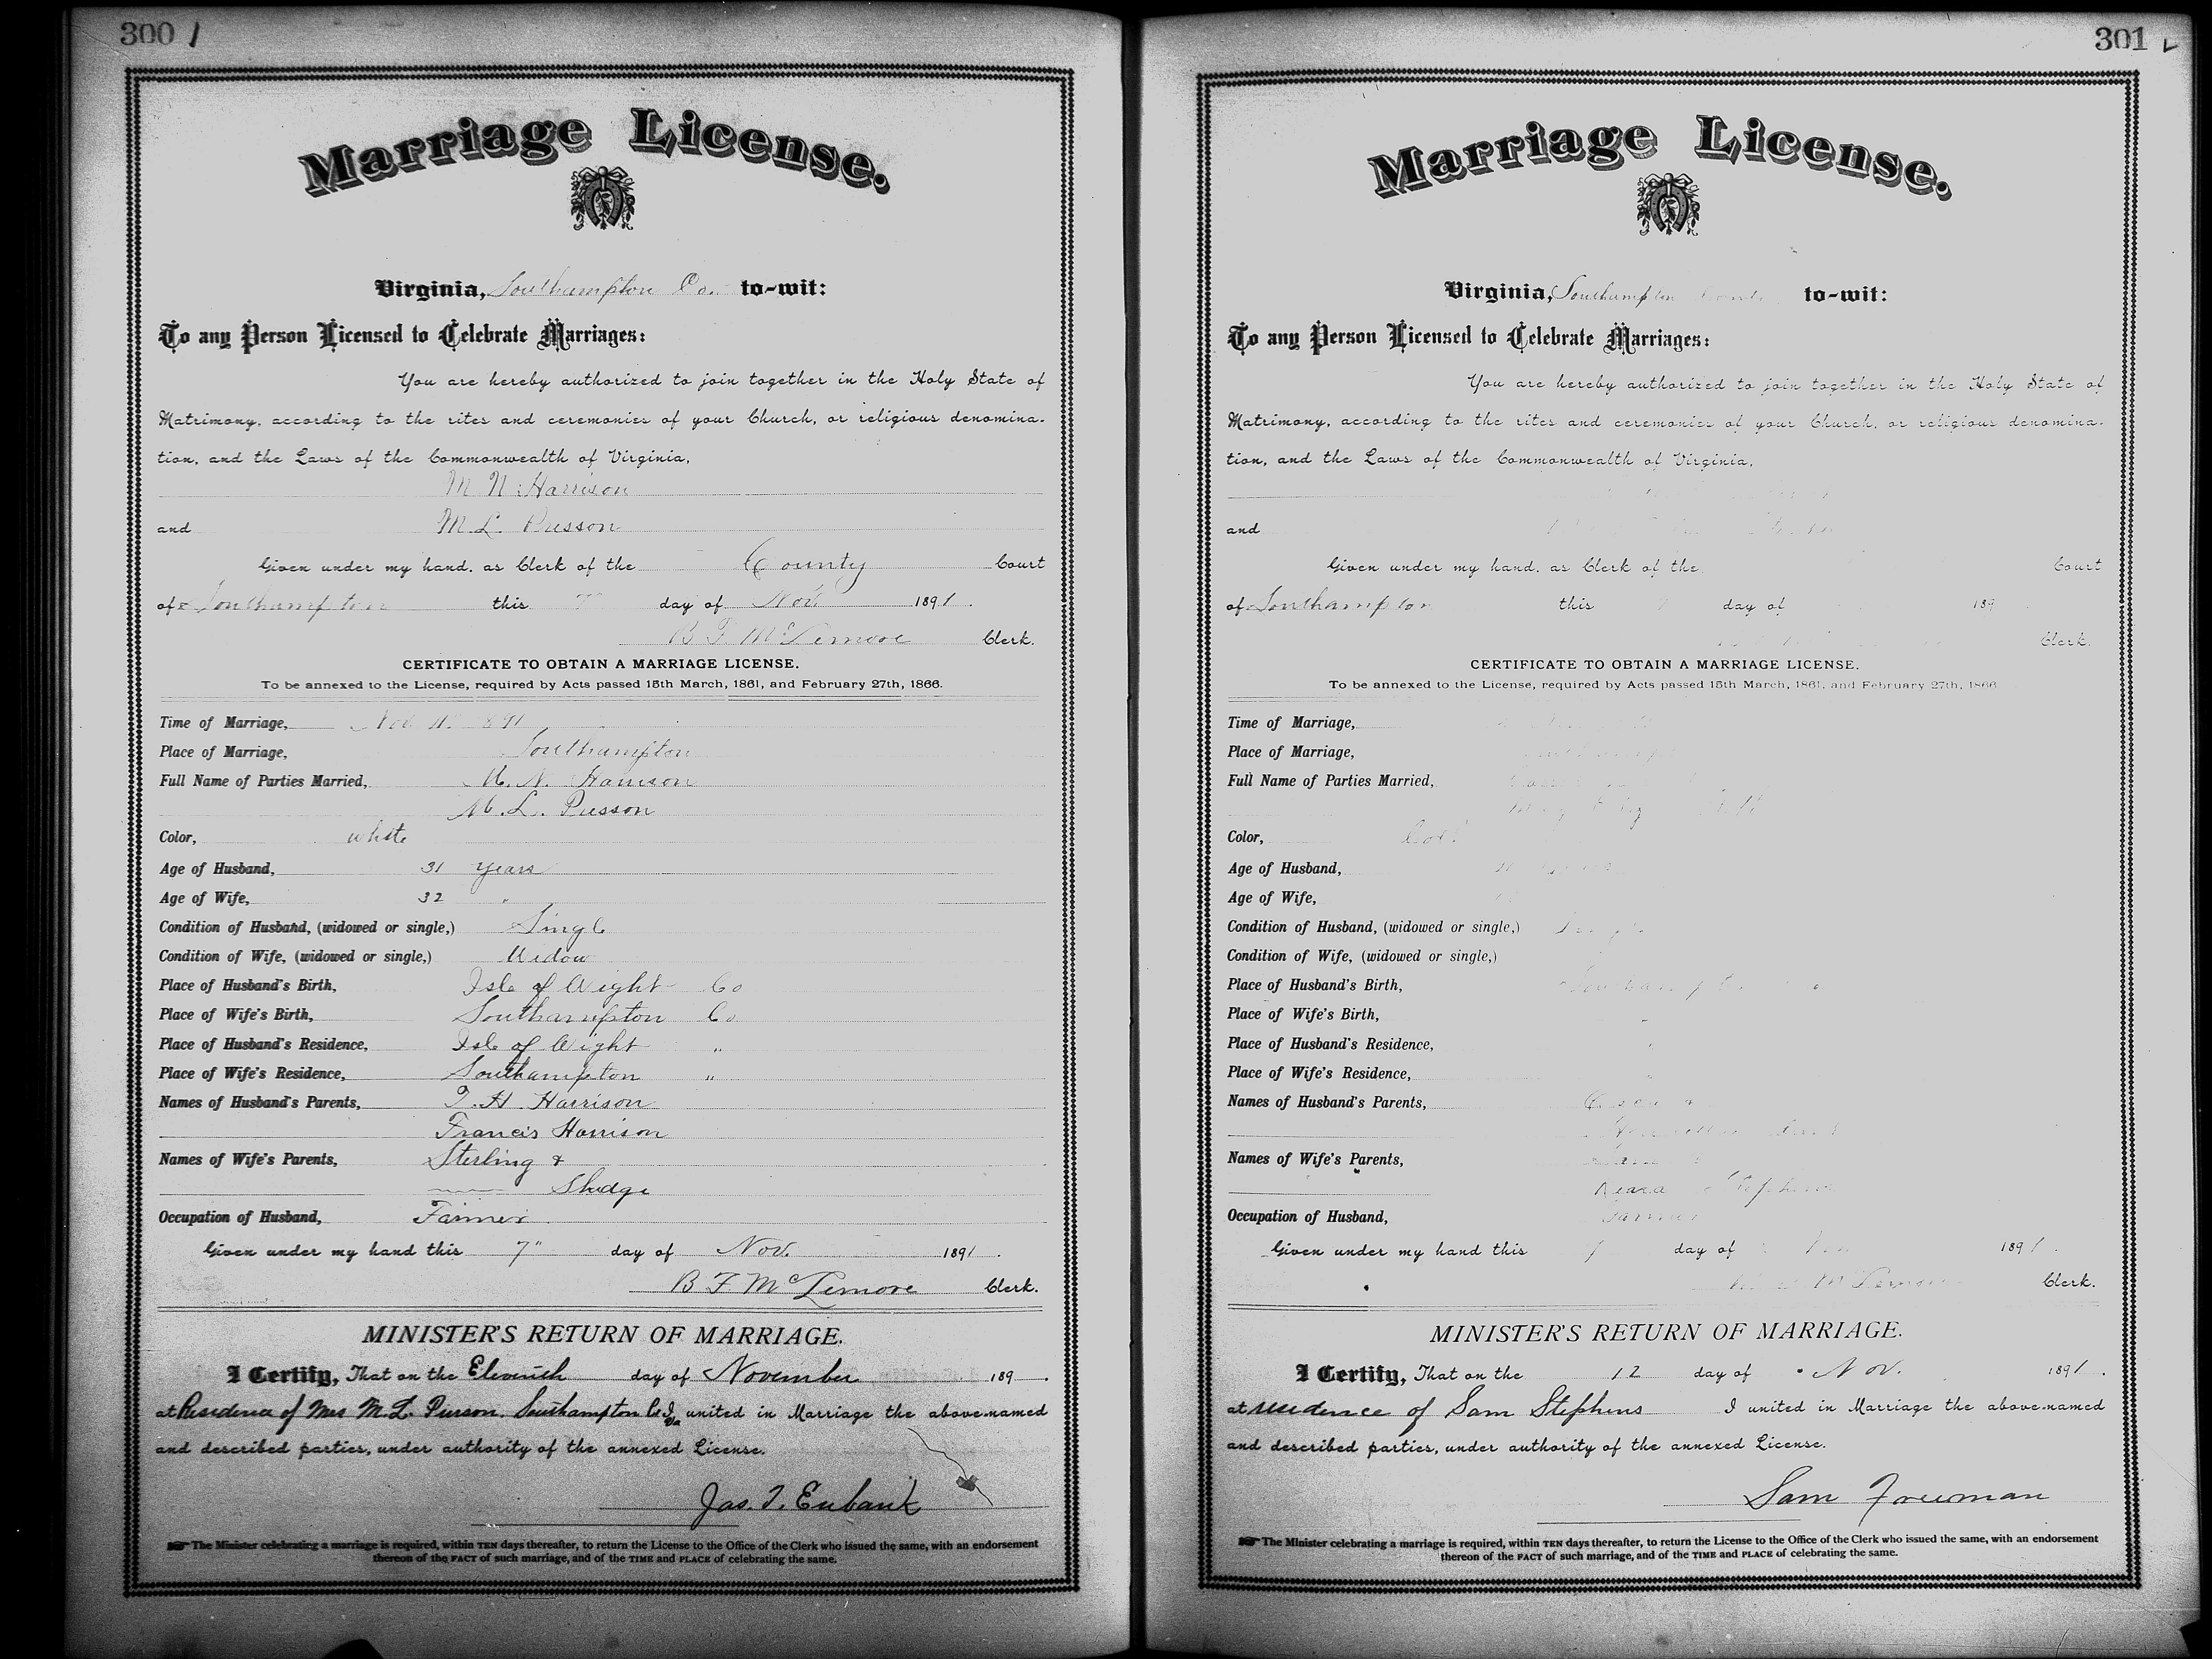 300 1
Marriage License.
Virginia, Southampton Co. to-wit:
To any Person Licensed to Celebrate Marriages:
You are hereby authorized to join together in the Holy State of
Matrimony, according to the rites and ceremonies of your Church, or religious denomina-
tion, and the Laws of the Commonwealth of Virginia,
M N Harrison
and M. L. Pusson
Given under my hand, as Clerk of the County Court
of Southampton this 7" day of Nov. 1891.
B F McLemore Clerk.
CERTIFICATE TO OBTAIN A MARRIAGE LICENSE.
To be annexed to the License, required by Acts passed 15th March, 1861, and February 27th, 1866.
Time of Marriage, Nov 11. 1891
Place of Marriage, Southampton
Full Name of Parties Married, M. N. Harrison
M. L. Pusson
Color, white
Age of Husband, 31 years
Age of Wife, 32 "
Condition of Husband, (widowed or single,) Single
Condition of Wife, (widowed or single,) Widow
Place of Husband's Birth, Isle of Wight Co
Place of Wife's Birth, Southampton Co
Place of Husband's Residence, Isle of Wight "
Place of Wife's Residence, Southampton "
Names of Husband's Parents, T. H. Harrison
Francis Harrison
Names of Wife's Parents, Sterling &
Sledge
Occupation of Husband, Farmer.
Given under my hand this 7" day of Nov. 1891.
B F McLemore Clerk.
MINISTER'S RETURN OF MARRIAGE.
I Certify, That on the Eleventh day of November 189 .
at Residence of Mrs M. L. Purson. Southampton Co Va I united in Marriage the above-named
and described parties, under authority of the annexed License.
Jas. T. Eubank
The Minister celebrating a marriage is required, within TEN days thereafter, to return the License to the Office of the Clerk who issued the same, with an endorsement
thereof of the FACT of such marriage, and of the TIME and PLACE of celebrating the same.
301
Marriage License.
Virginia, Southampton County to-wit:
To any Person Licensed to Celebrate Marriages:
You are hereby authorized to join together in the Holy State of
Matrimony, according to the rites and ceremonies of your Church, or religious denomina-
tion, and the Laws of the Commonwealth of Virginia,
and
Given under my hand, as Clerk of the Court
of Southampton this day of 189
Clerk.
CERTIFICATE TO OBTAIN A MARRIAGE LICENSE.
To be annexed to the License, required by Acts passed 15th March, 1861, and February 27th, 1866
Time of Marriage,
Place of Marriage,
Full Name of Parties Married,
Color, Col'
Age of Husband,
Age of Wife,
Condition of Husband, (widowed or single,) Single
Condition of Wife, (widowed or single,)
Place of Husband's Birth, Southampton
Place of Wife's Birth,
Place of Husband's Residence,
Place of Wife's Residence,
Names of Husband's Parents,
Names of Wife's Parents,
Stephens
Occupation of Husband, Farmer
Given under my hand this day of 1891.
McLemore Clerk.
MINISTER'S RETURN OF MARRIAGE.
I Certify, That on the 12 day of Nov. 1891.
at residence of Sam Stephens I united in Marriage the above-named
and described parties, under authority of the annexed License.
Sam Freeman
The Minister celebrating a marriage is required, within TEN days thereafter, to return the License to the Office of the Clerk who issued the same, with an endorsement
thereon of the FACT of such marriage, and of the TIME and PLACE of celebrating the same.